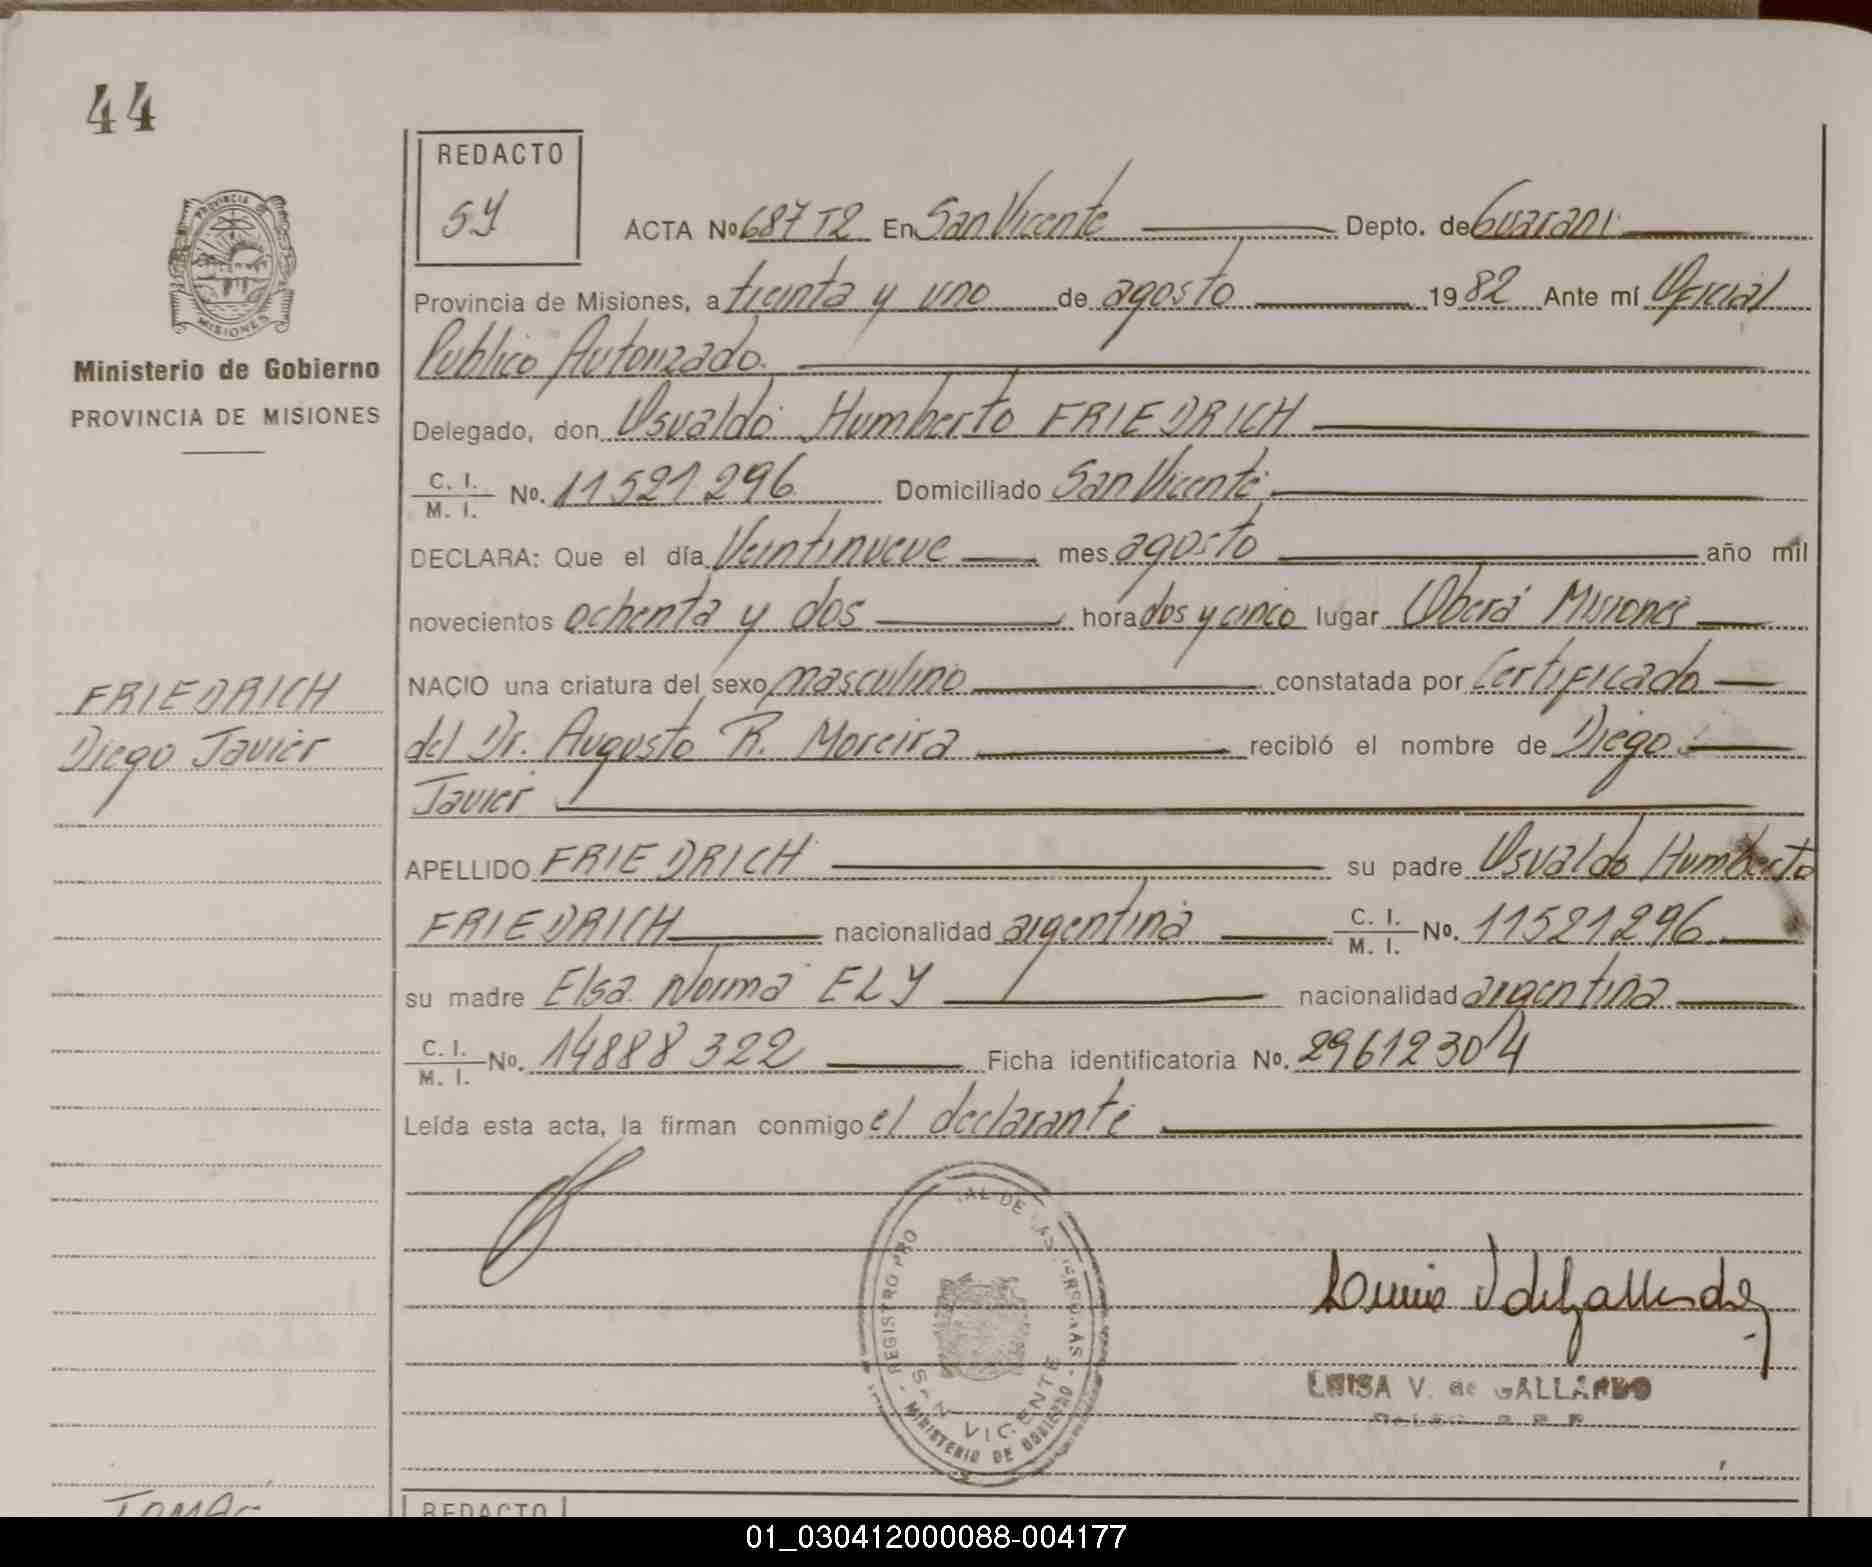 44
REDACTO
SY
PROVINCIA DE MISIONES
ACTA Nº 687 T2 En San Vicente Depto. de Guaraní
Provincia de Misiones, a treinta y uno de agosto 1982 Ante mí Oficial
Público Autorizado
Ministerio de Gobierno
PROVINCIA DE MISIONES
Delegado, don Osvaldo Humberto FRIEDRICH
C. I. / M. I. No. 11521296 Domiciliado San Vicente
DECLARA: Que el día Veintinueve mes agosto año mil
novecientos ochenta y dos hora dos y cinco lugar Oberá Misiones
NACIO una criatura del sexo masculino constatada por Certificado
FRIEDRICH
Diego Javier
del Dr. Augusto R. Moreira recibió el nombre de Diego
Javier
APELLIDO FRIEDRICH su padre Osvaldo Humberto
FRIEDRICH nacionalidad argentina C. I. / M. I. No. 11521296
su madre Elsa Norma ELY nacionalidad argentina
C. I. / M. I. No. 14888322 Ficha identificatoria No. 29612304
Leída esta acta, la firman conmigo el declarante
REGISTRO PRO IAL DE LAS PERSONAS
SAN VICENTE
MINISTERIO DE GOBIERNO
LUISA V. de GALLARDO
REDACTO
01_030412000088-004177